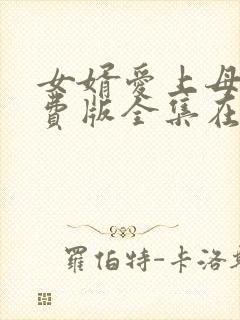 女婿愛上母
費版全集在
羅伯特-卡洛